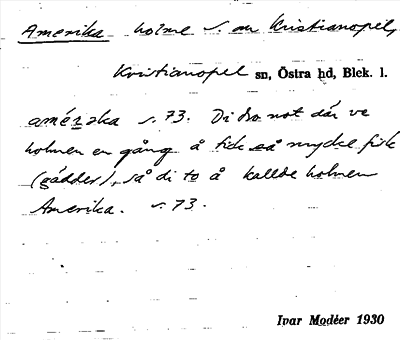 Amerika holme s. om Kristianopel,
Kristianopel sn, Östra hd, Blek. l.
amérika s. 73. Di dro not där ve
holmen en gång å fick så mycke fisk
(gäddor), så di to å kallde holmen
Amerika. s. 73.
Ivar Modéer 1930